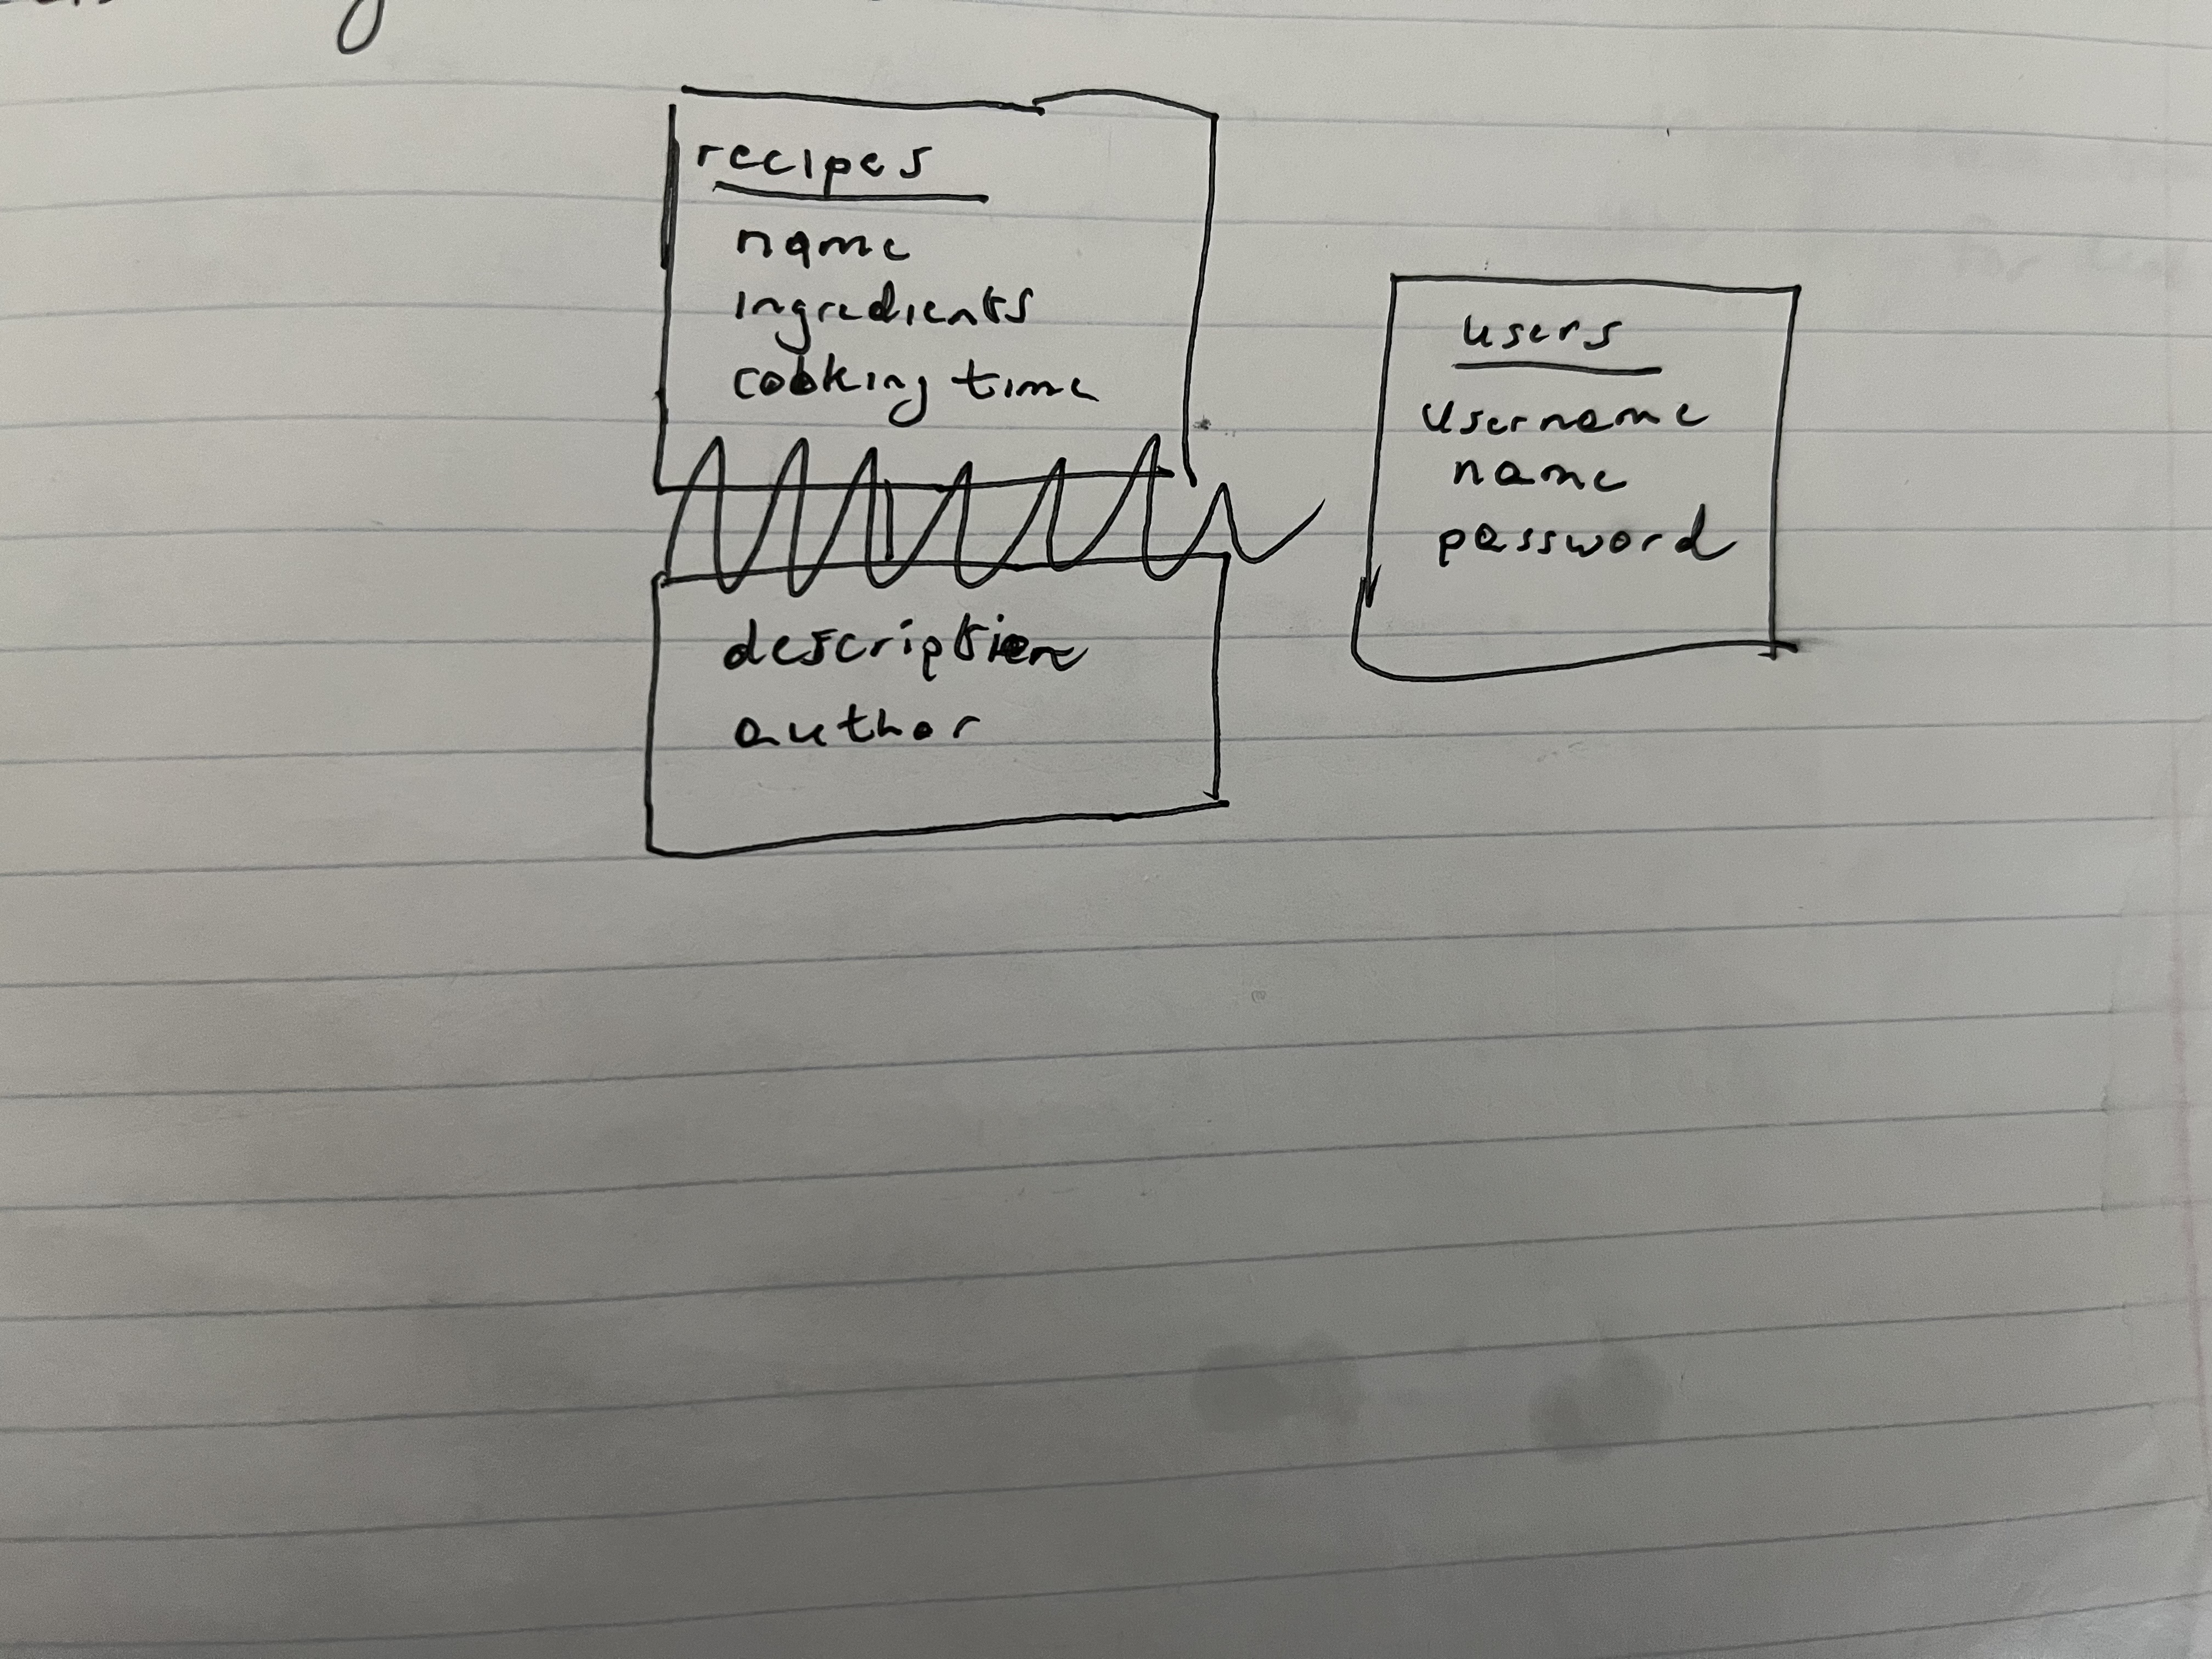 recipes
name
ingredients
cooking time
description
author
users
username
name
password